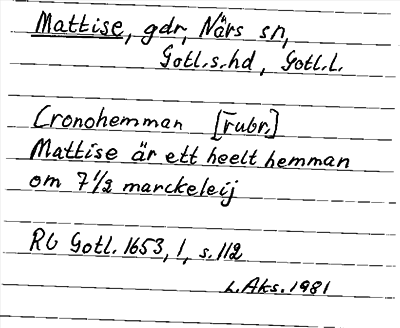 Mattise, gdr, Närs sn,
Gotl.s.hd, Gotl.l.
Cronohemman [rubr.]
Mattise är ett heelt hemman
om 7 1/2 marckeleij
RL Gotl. 1653, 1, s. 112
L. Aks. 1981